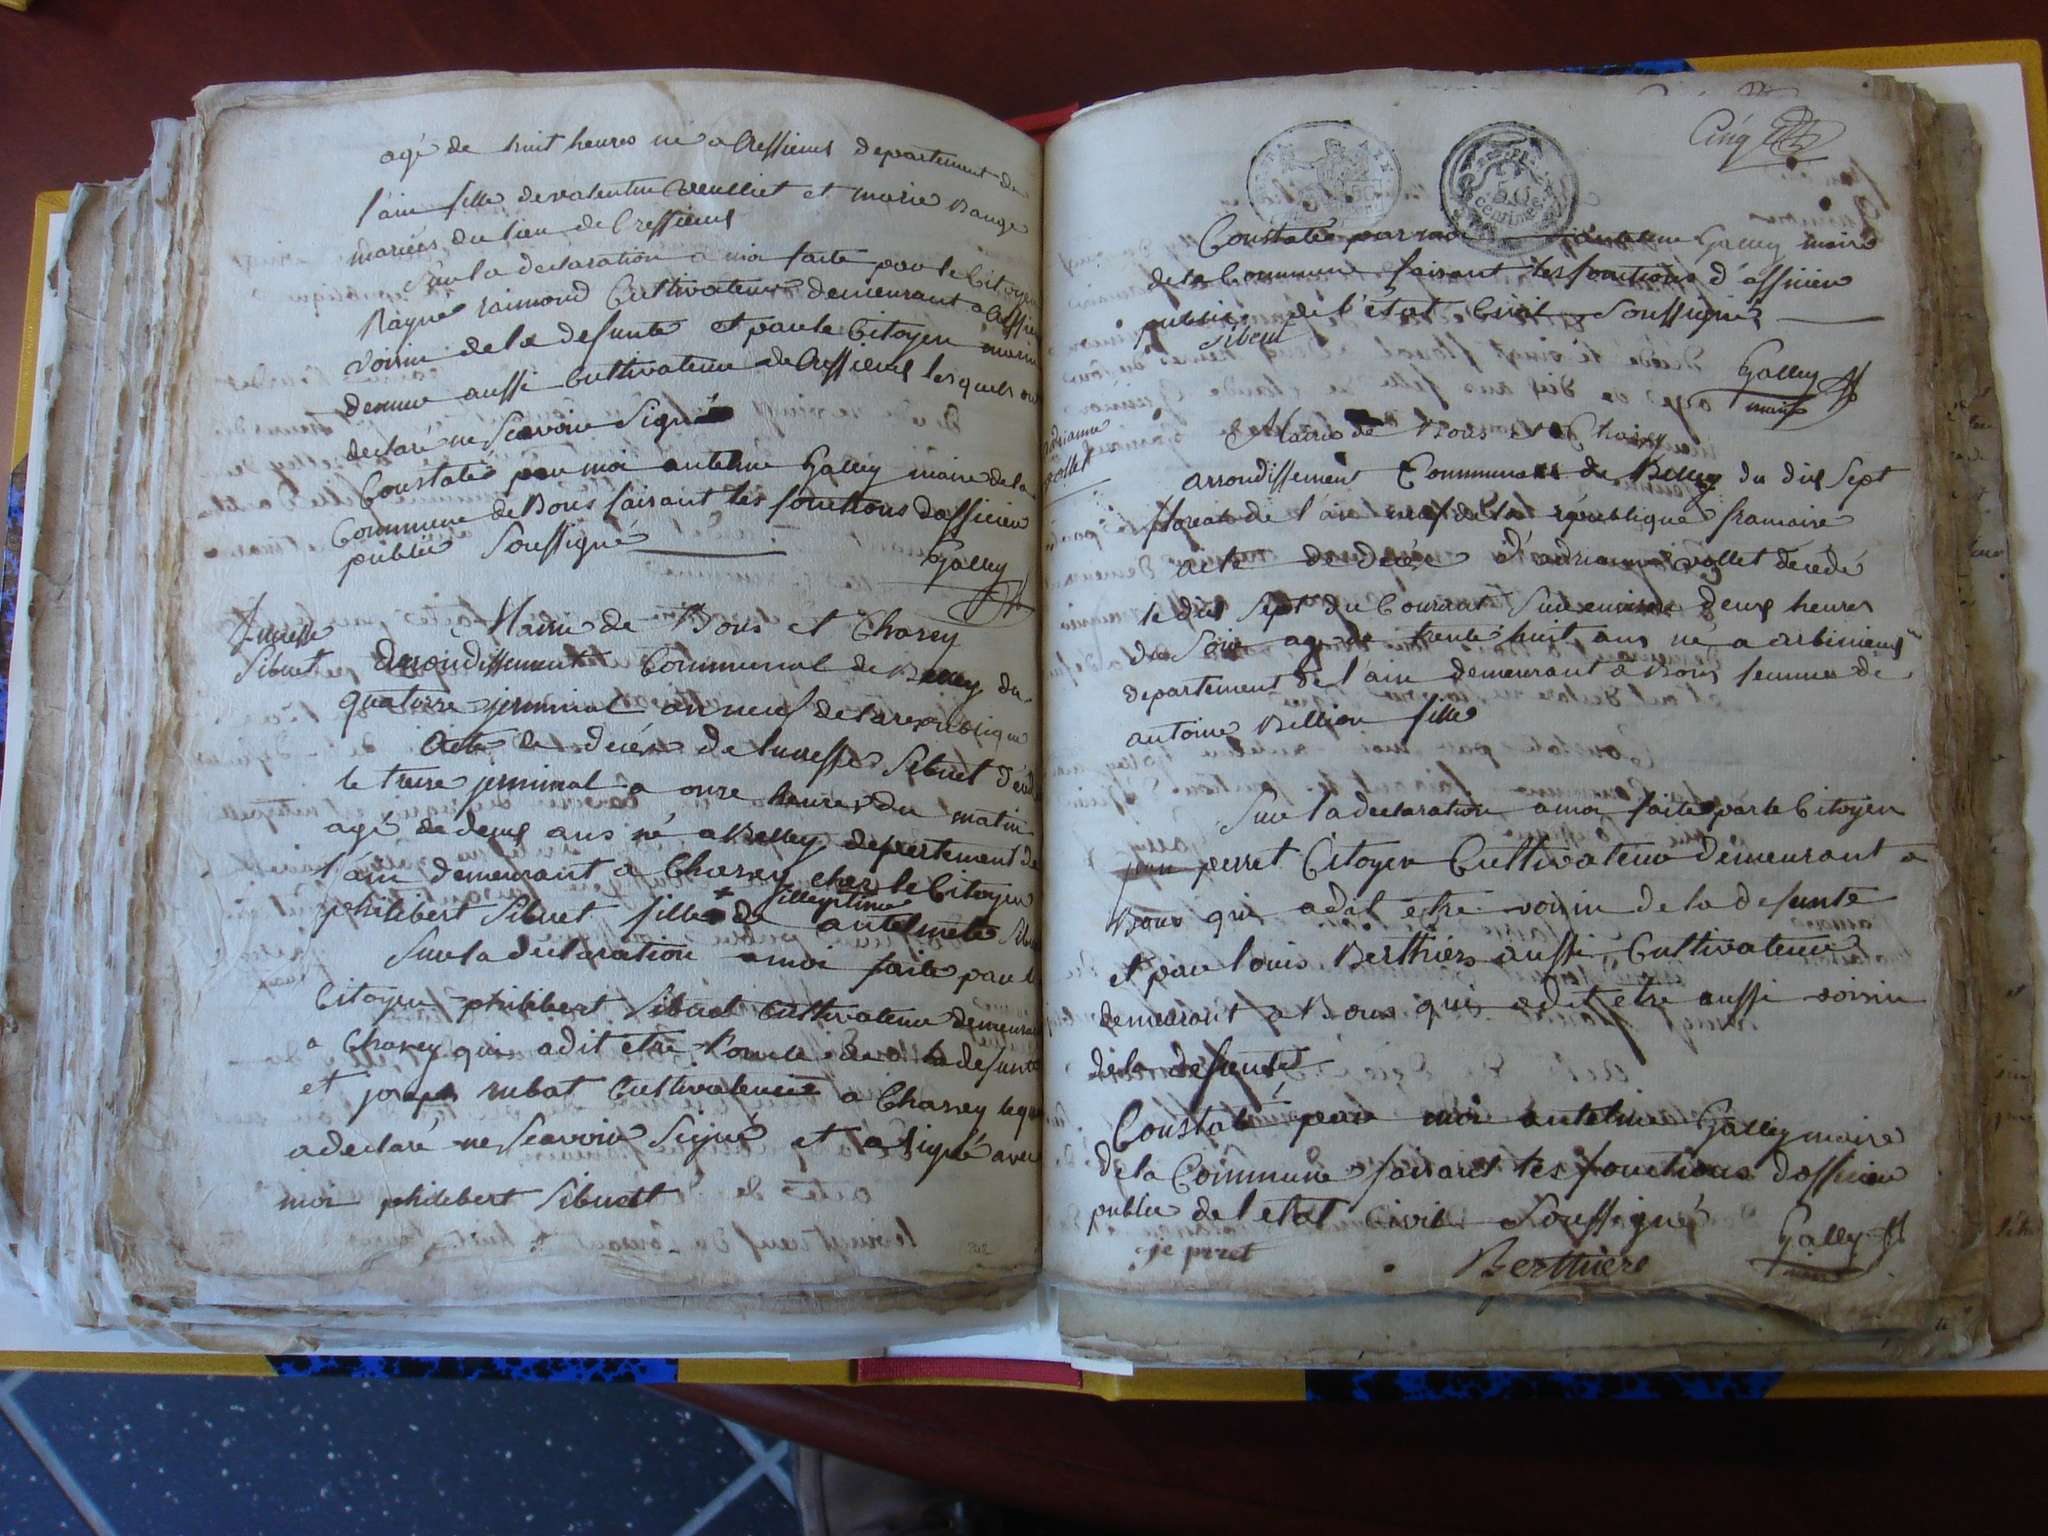 agé de huit heures né a Cressieux departement de
l'ain fille de valentin et marie Bauge
mariées du lieu de Cressieux
Sur la declaration a moi faite par le Citoyen
Rayne raimond Cultivateur demeurant a Cressieu
voisin de la defunte et par le Citoyen
demeure aussi Cultivateur de Cressieux les quels ont
declaré ne Scavoir Signé
Constaté par moi antelme Galley maire de la
Commune de Bons faisant les fonctions dofficier
public Soussigné
Galley
Lucresse
Sibuet
Mairie de Bons et Chasey
arrondissement Communal de Belley du
quatorze jerminal an neuf de la republique
Acte de décés de lucresse Sibuet décédé
le treize jerminal a onze heures du matin
agé de deux ans né a Belley departement de
l'ain demeurant a Chasey chez le Citoyen
illegitime
philibert Sibuet fille + de antelmete Sibu
Sur la declaration a moi faite par le
Citoyen philibert Sibuet Cultivateur demeurant
a Chasey qui a dit etre l'oncle de la defunte
et joseph rubat Cultivateur a Chasey lequel
a declaré ne Scavoir Signé et a signé avec
moi philibert Sibuett
Cinq
50
centime
Constaté par moi antelme Galley maire
de la Commune faisant les fonctions d'officier
public de l'état Civil Soussigné
Sibeut
Galley
maire
adrianne
vollet
Mairie de Bons et Chasey
arrondissement Communal de Belley du dix Sept
floreal de l'an neuf de la république francaise
acte de décés d'adrianne vollet décédé
le dix Sept du Courant Sur environ deux heures
du Soir agé de trente huit ans né a arbinieux
departement de l'ain demeurant a Bons femme de
antoine Billion fille
Sur la declaration a moi faite par le Citoyen
jean perret Citoyen Cultivateur demeurant a
Bons qui a dit etre voisin de la defunte
et par louis Berthier aussi Cultivateur
demeurant a Bons qui a dit etre aussi voisin
de la defunte
Constaté par moi antelme Galley maire
de la Commune faisant les fonctions dofficier
public de l'etat Civil Soussigné
je peret
Berthiere
Galley
maire